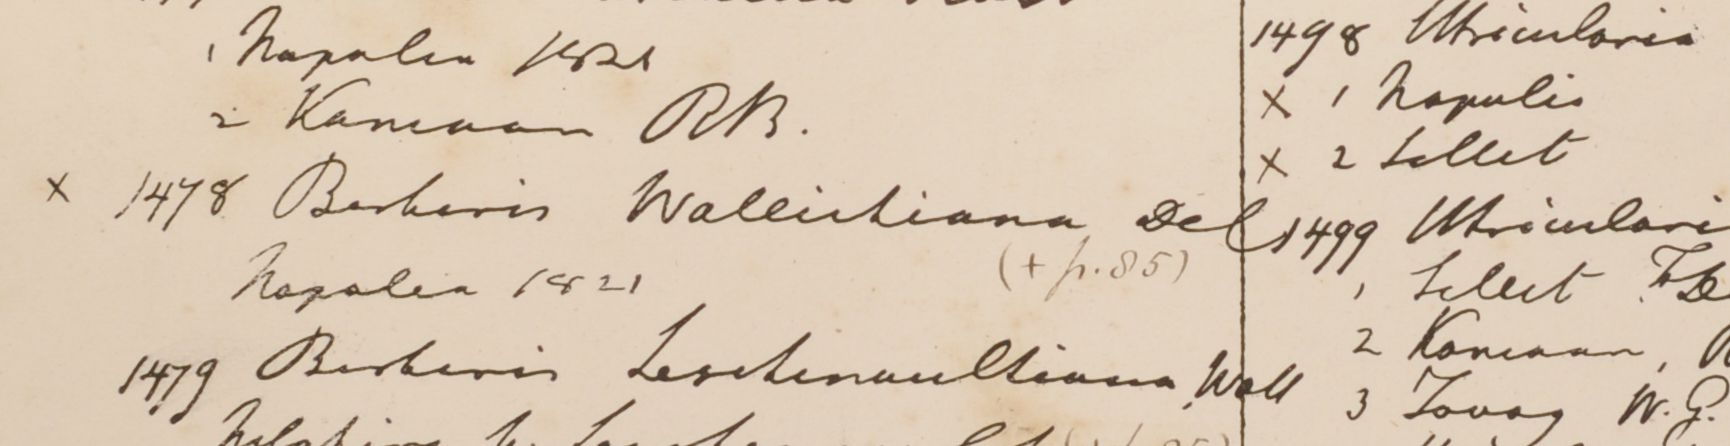 1 Napalia 1821
2 Kamaon RB.
x 1478 Berberis Wallichiana Del
(+ p. 85)
Napalia 1821
1479 Berberis Leschenaultiana Wall
1498 Utricularia
x 1 Napalia
x 2 Sillet
1499 Utricularia
1 Sillet
2 Kamaon,
3 Tavoy W.G.